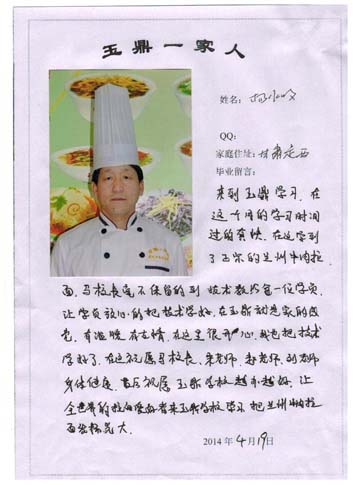 玉鼎一家人
姓名:
QQ:
家庭住址:甘肃定西
毕业留言:
来到玉鼎学习,在
这一个月的学习时间
过的真快,在这学到
了正宗的兰州牛肉拉
面,马校长毫不保留的到技术教给每一位学员
让学员放心的把技术学好,在玉鼎就是家的感
觉,有温暖有友情,在这里很开心,我也把技术
学好了,在这祝愿马校长,老师,赵老师,刘老师
身体健康,最后祝愿玉鼎学校越办越好,让
全世界的拉面爱好者来玉鼎学校学习把兰州牛肉拉
面发扬光大。
2014年4月19日